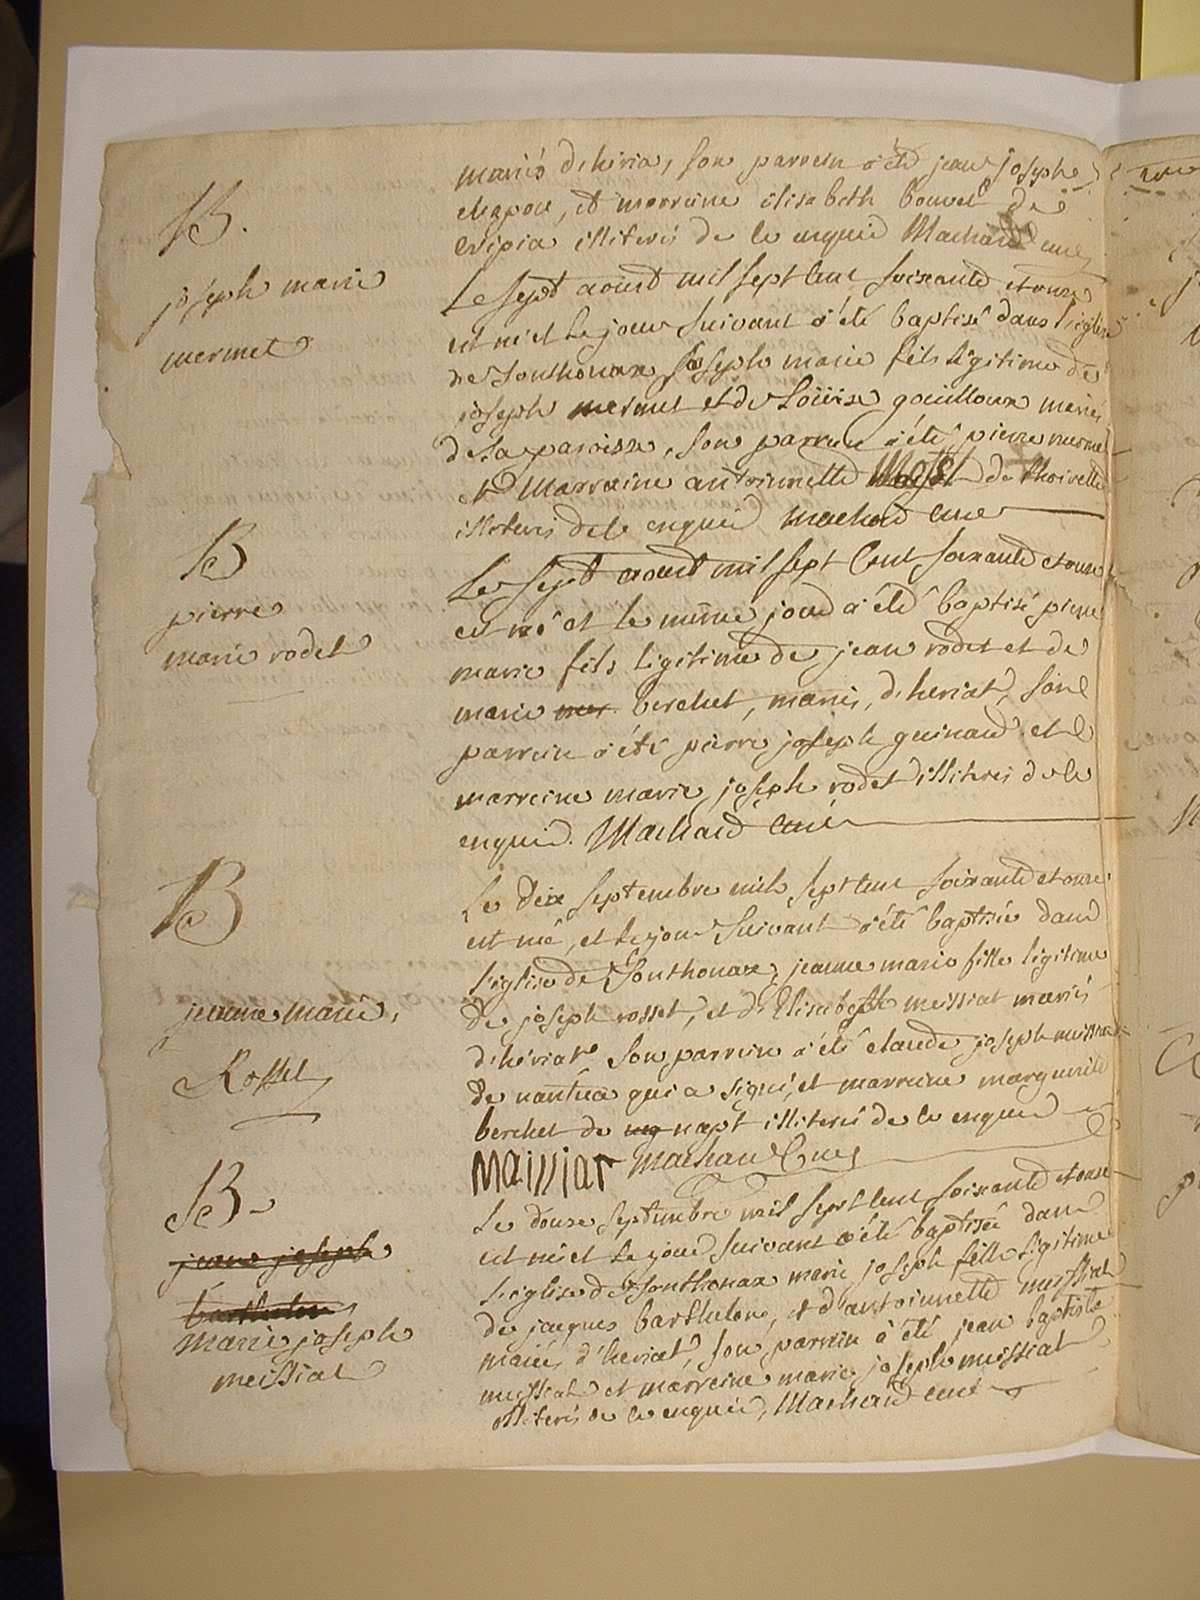 mariés d'hériat, son parrein a été jean joseph
chapou, et marreine elisabeth bouvet de
crépiat illiterés de ce enquis Machard curé
B.
joseph marie
mermet
Le sept aoust mil sept cent soixante et onze
est né et le jour suivant a été baptisé dans l'église
de Sonthonax joseph marie fils légitime de
joseph mermet et de Loüise goüilloux mariés
de sa paroisse, son parrein a été pierre mermet
et marraine antoinette de thoirette
illiterés de ce enquis machard curé
B
pierre
marie rodet
Le sept aoust mil sept cent soixante et onze
est né et le même jour a été baptisé pierre
marie fils légitime de jean rodet et de
marie berchet, mariés, d'heriat, son
parrein a été pierre joseph guinand et
marreine marie joseph rodet illiterés de ce
enquis. Machard curé
B
jeanne marie
Rosset
Le dix septembre mil sept cent soixante et onze
est née, et le jour suivant a été baptisée dans
l'église de Sonthonax, jeanne marie fille légitime
de joseph rosset, et d'Elisabeth meissiat mariés
d'hériat son parrein a été claude joseph meissiat
de nantua qui a signé, et marreine marguerite
berchet de napt illiterée de ce enquise
Maissiat machard curé
B
jean joseph
barthelon
marie joseph
meissiat
Le douze septembre mil sept cent soixante et onze
est né et le jour suivant a été baptisée dans
l'église de Sonthonax marie joseph fille légitime
de jacques barthelon, et d'antoinette meissiat
mariés d'hériat, son parrein a été jean baptiste
meissiat et marreine marie joseph meissiat
illiterés de ce enquis, Machard curé